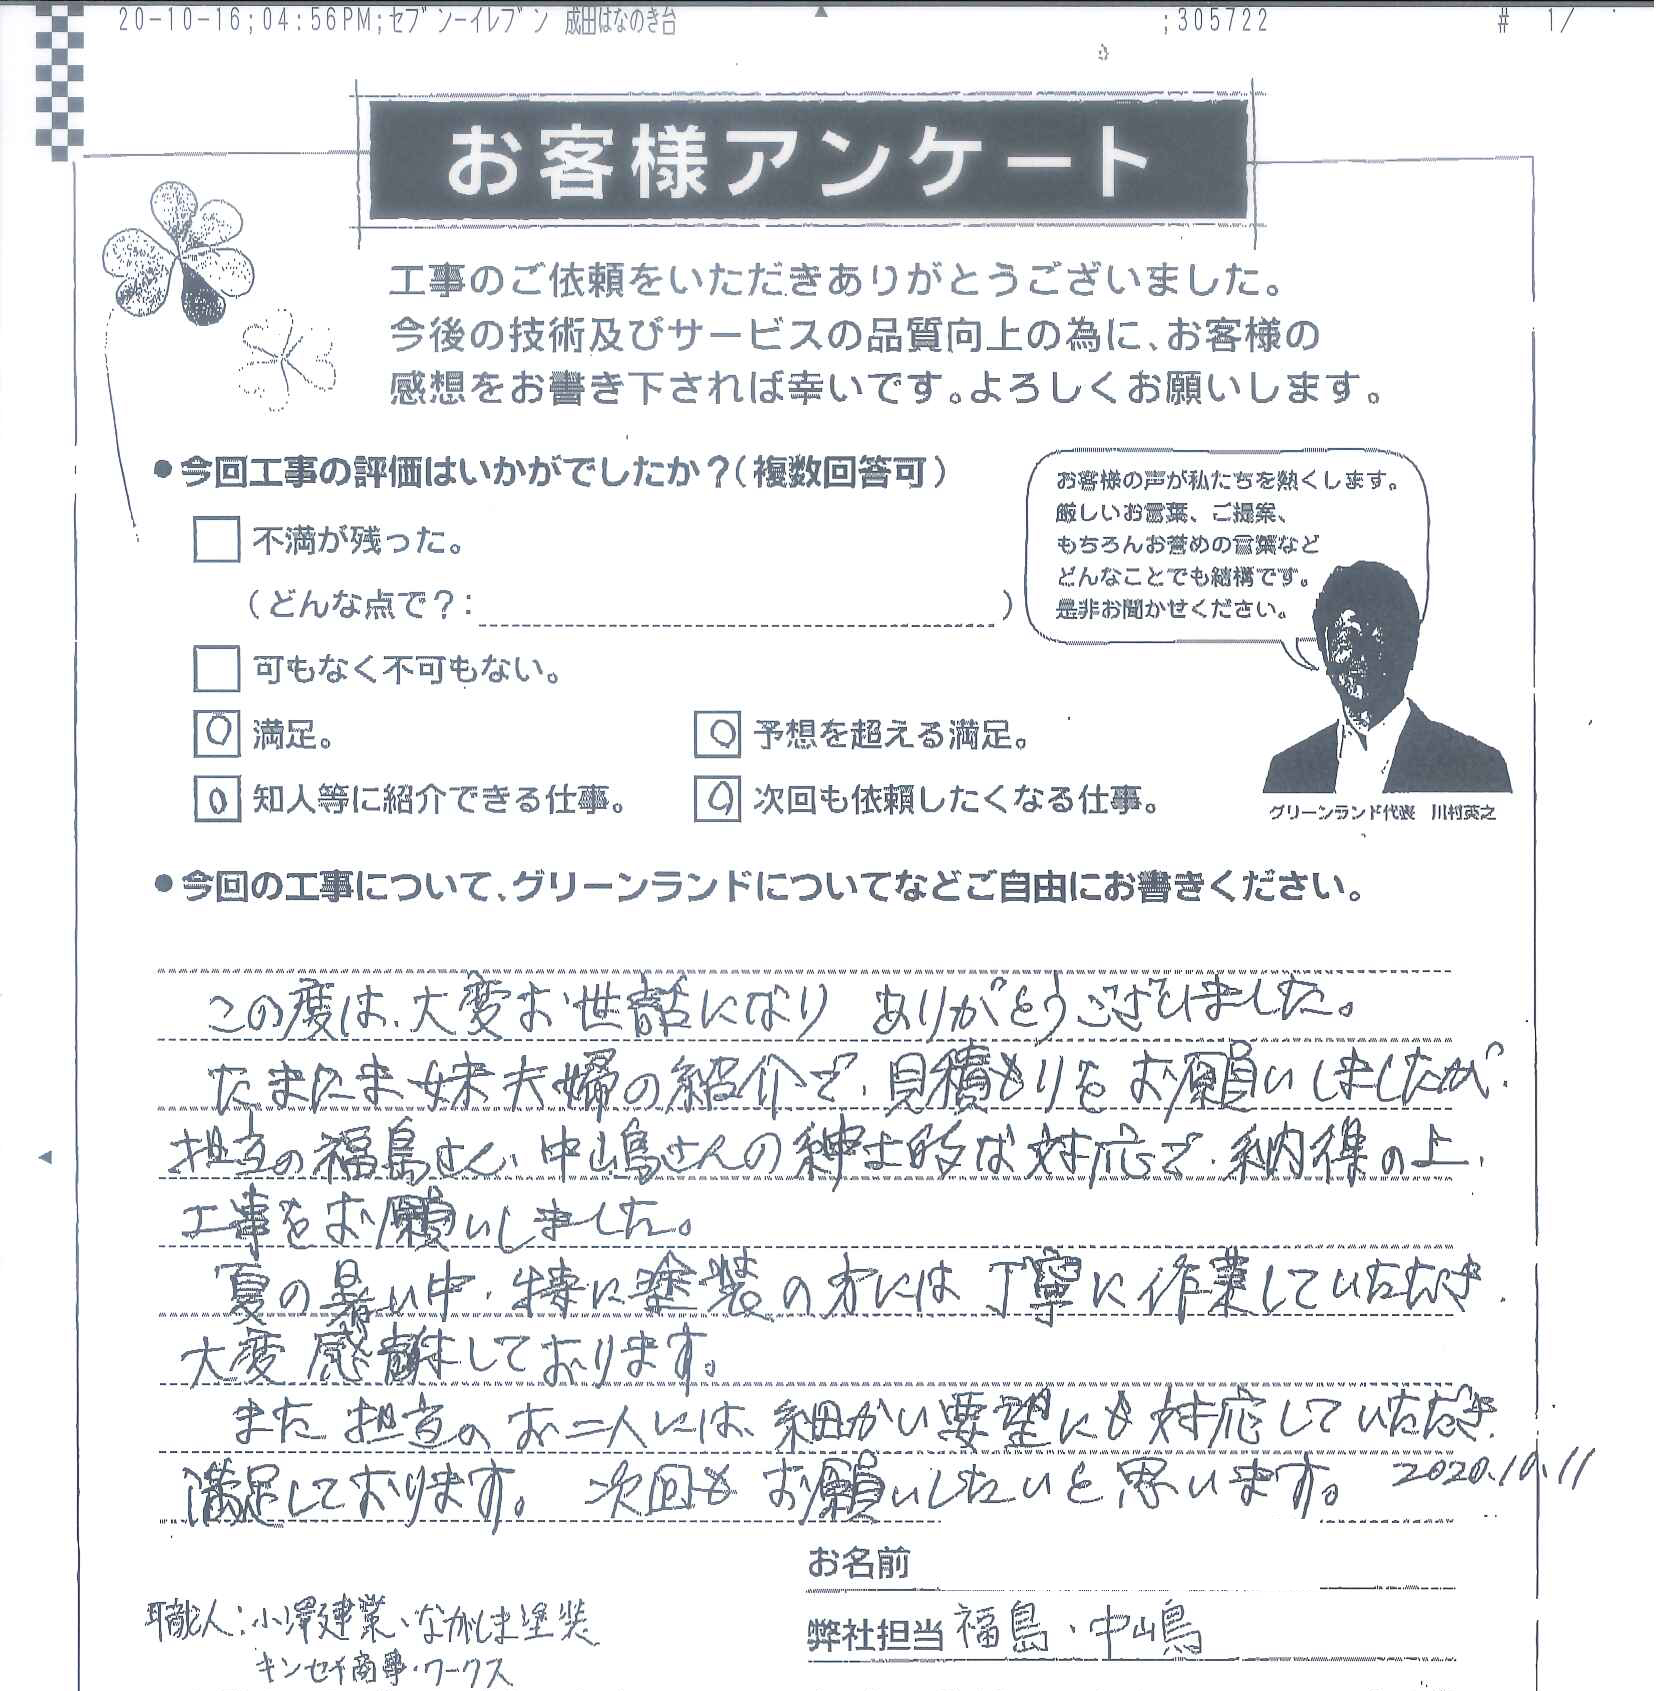 20-10-16;04:56PM;ｾﾌﾞﾝ-ｲﾚﾌﾞﾝ 成田はなのき台 ;305722 # 1/
お客様アンケート
工事のご依頼をいただきありがとうございました。
今後の技術及びサービスの品質向上の為に、お客様の
感想をお書き下されば幸いです。よろしくお願いします。
●今回工事の評価はいかがでしたか？（複数回答可）
不満が残った。
（どんな点で？： ）
可もなく不可もない。
○ 満足。
○ 予想を超える満足。
○ 知人等に紹介できる仕事。
○ 次回も依頼したくなる仕事。
お客様の声が私たちを熱くします。
厳しいお言葉、ご提案、
もちろんお誉めの言葉など
どんなことでも結構です。
是非お聞かせください。
グリーンランド代表 川村英之
●今回の工事について、グリーンランドについてなどご自由にお書きください。
この度は、大変お世話になり ありがとうございました。
たまたま妹夫婦の紹介で、見積もりをお願いしましたが、
担当の福島さん、中嶋さんの紳士的な対応で、納得の上、
工事をお願いしました。
夏の暑い中、特に塗装の方には丁寧に作業していただき、
大変感謝しております。
また担当のお二人には、細かい要望にも対応していただき、
満足しております。 次回もお願いしたいと思います。 2020.10.11
お名前
弊社担当 福島・中嶋
職人：小澤建業、ながしま塗装
キンセキ商事・ワークス